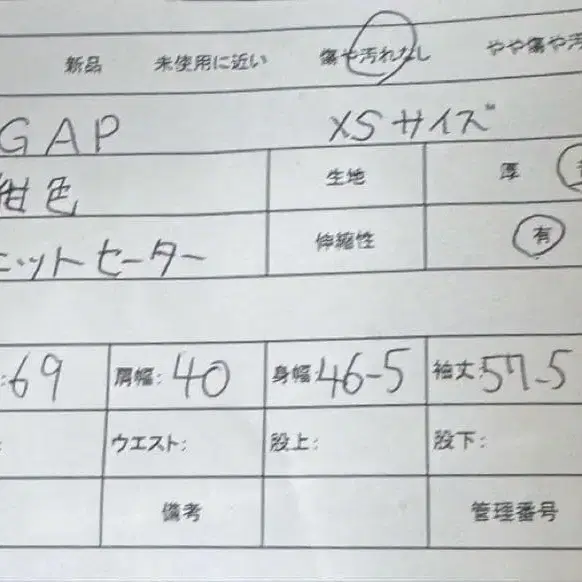 新品 未使用に近い 傷や汚れなし やや傷や汚
GAP XSサイズ
紺色 生地 厚
ニットセーター 伸縮性 有
:69 肩幅:40 身幅:46-5 袖丈:57-5
: ウエスト: 股上: 股下:
備考 管理番号